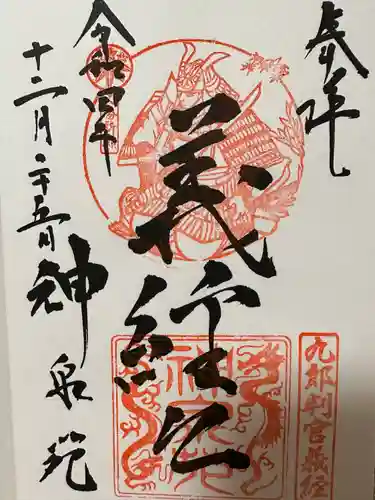 奉拝
義経
令和四年
十二月二十五日
神泉苑
神泉苑
九郎判官義経